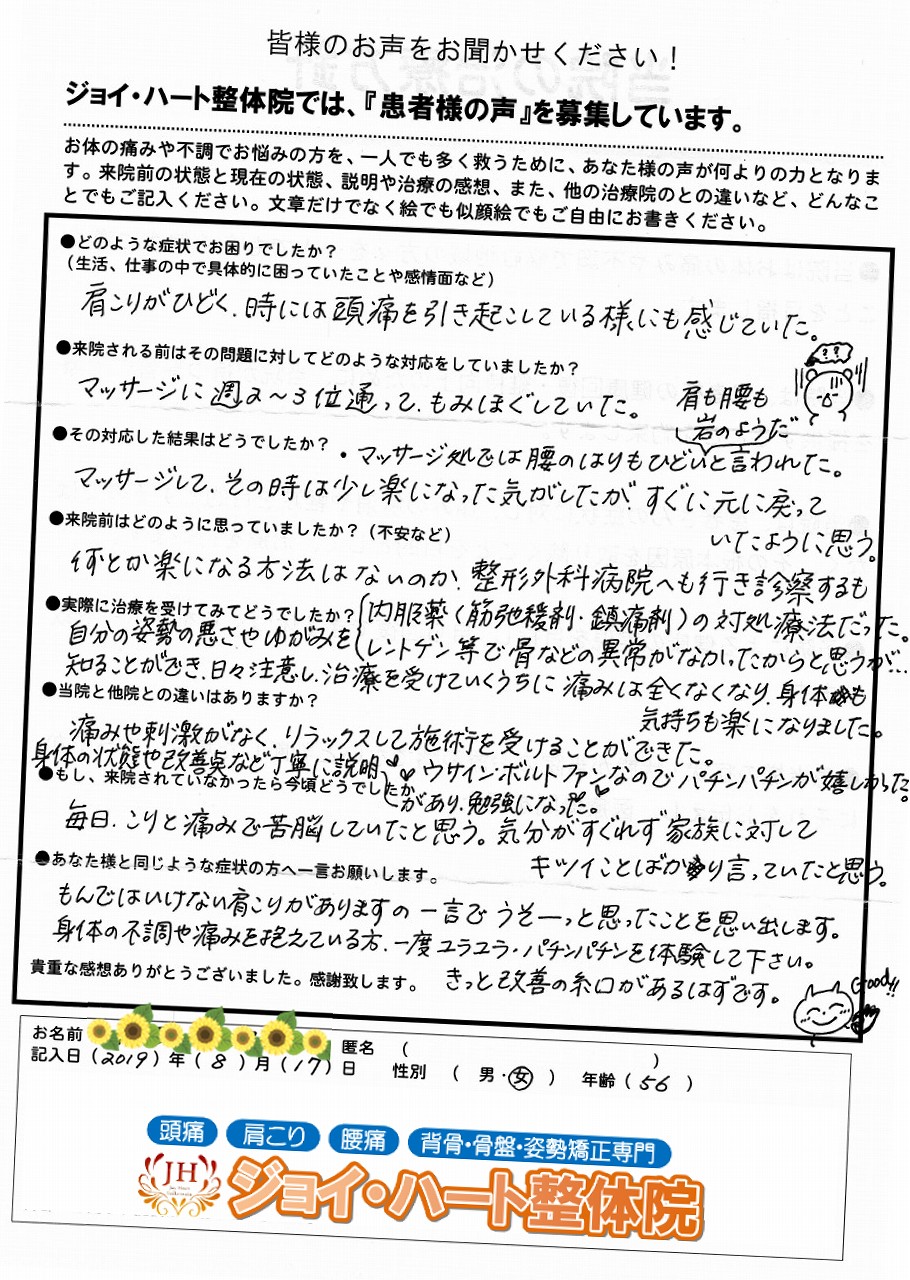 皆様のお声をお聞かせください！
ジョイ・ハート整体院では、『患者様の声』を募集しています。
お体の痛みや不調でお悩みの方を、一人でも多く救うために、あなた様の声が何よりの力となりま
す。来院前の状態と現在の状態、説明や治療の感想、また、他の治療院のとの違いなど、どんなこ
とでもご記入ください。文章だけでなく絵でも似顔絵でもご自由にお書きください。
●どのような症状でお困りでしたか？
（生活、仕事の中で具体的に困っていたことや感情面など）
肩こりがひどく、時には頭痛を引き起こしている様にも感じていた。
●来院される前はその問題に対してどのような対応をしていましたか？
マッサージに週2〜3位通って、もみほぐしていた。
??
肩も腰も
岩のようだ
●その対応した結果はどうでしたか？
・マッサージ処では腰のはりもひどいと言われた。
マッサージして、その時は少し楽になった気がしたがすぐに元に戻って
いたように思う。
●来院前はどのように思っていましたか？（不安など）
何とか楽になる方法はないのか、整形外科病院へも行き診察するも
内服薬（筋弛緩剤・鎮痛剤）の対処療法だった。
レントゲン等で骨などの異常がなかったからと思うが…
●実際に治療を受けてみてどうでしたか？
自分の姿勢の悪さやゆがみを
知ることができ、日々注意し、治療を受けていくうちに痛みは全くなくなり、身体も
気持ちも楽になりました。
●当院と他院との違いはありますか？
痛みや刺激がなく、リラックスして施術を受けることができた。
身体の状態や改善点など丁寧に説明
があり、勉強になった。
ウサイン・ボルトファンなのでパチンパチンが嬉しかった。
●もし、来院されていなかったら今頃どうでしたか
毎日、こりと痛みで苦脳していたと思う。気分がすぐれず家族に対して
キツイことばかり言っていたと思う。
●あなた様と同じような症状の方へ一言お願いします。
もんではいけない肩こりがありますの一言でうそーっと思ったことを思い出します。
身体の不調や痛みを抱えている方、一度ユラユラ・パチンパチンを体験して下さい。
きっと改善の糸口があるはずです。
Good!!
貴重な感想ありがとうございました。感謝致します。
お名前
匿名（　　）
記入日（2019）年（8）月（17）日　性別（男・女）　年齢（56）
頭痛　肩こり　腰痛　背骨・骨盤・姿勢矯正専門
JH
ジョイ・ハート整体院